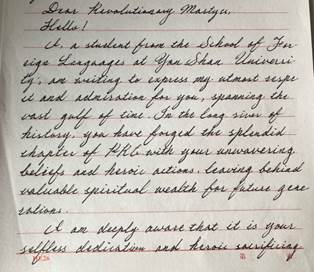 Dear Revolutionary Martyr,
Hello!
I, a student from the School of For
eign Languages at Yan Shan Universi
ty, am writing to express my utmost respe
ct and admiration for you, spanning the
vast gulf of time. In the long river of
history, you have forged the splendid
chapter of with your unwavering
beliefs and heroic actions, leaving behind
valuable spiritual wealth for future gene
rations.
I am deeply aware that it is your
selfless dedication and heroic sacrificing
第